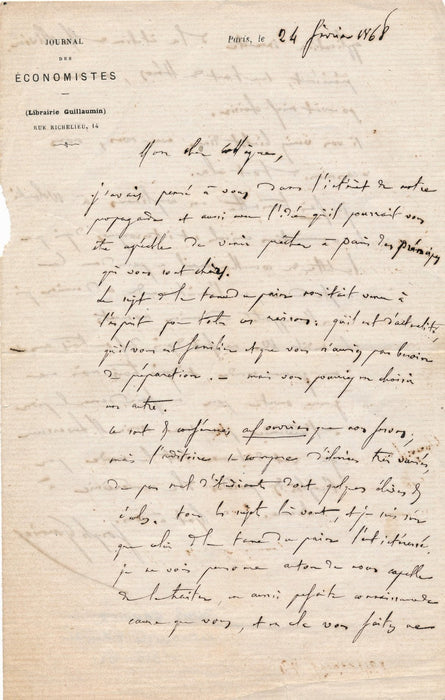 JOURNAL
DES
ÉCONOMISTES
(Librairie Guillaumin)
RUE RICHELIEU, 14
Paris, le 24 février 1868
Mon cher collègue,
j'avais pensé à vous dans l'intérêt de notre
propagande et aussi avec l'idée qu'il pourrait vous
être agréable de venir prêcher à Paris des principes
qui vous sont chers.
Le sujet de la taxe du pain m'était venu à
l'esprit pour toutes ces raisons: qu'il est d'actualité,
qu'il vous est familier et que vous n'auriez pas besoin
de préparation. — mais vous pourriez en choisir
un autre.
Ce sont des conférences que nous
mais l'auditoire se compose d'éléments très variés,
d'étudiants dont quelques élèves des
écoles. tous les sujets lui vont, et je suis sûr
que celui de la taxe du pain l'eût intéressé.
je ne vois personne autour de nous capable
de le traiter, en aussi parfaite connaissance de
cause que vous, et si cela vous faites